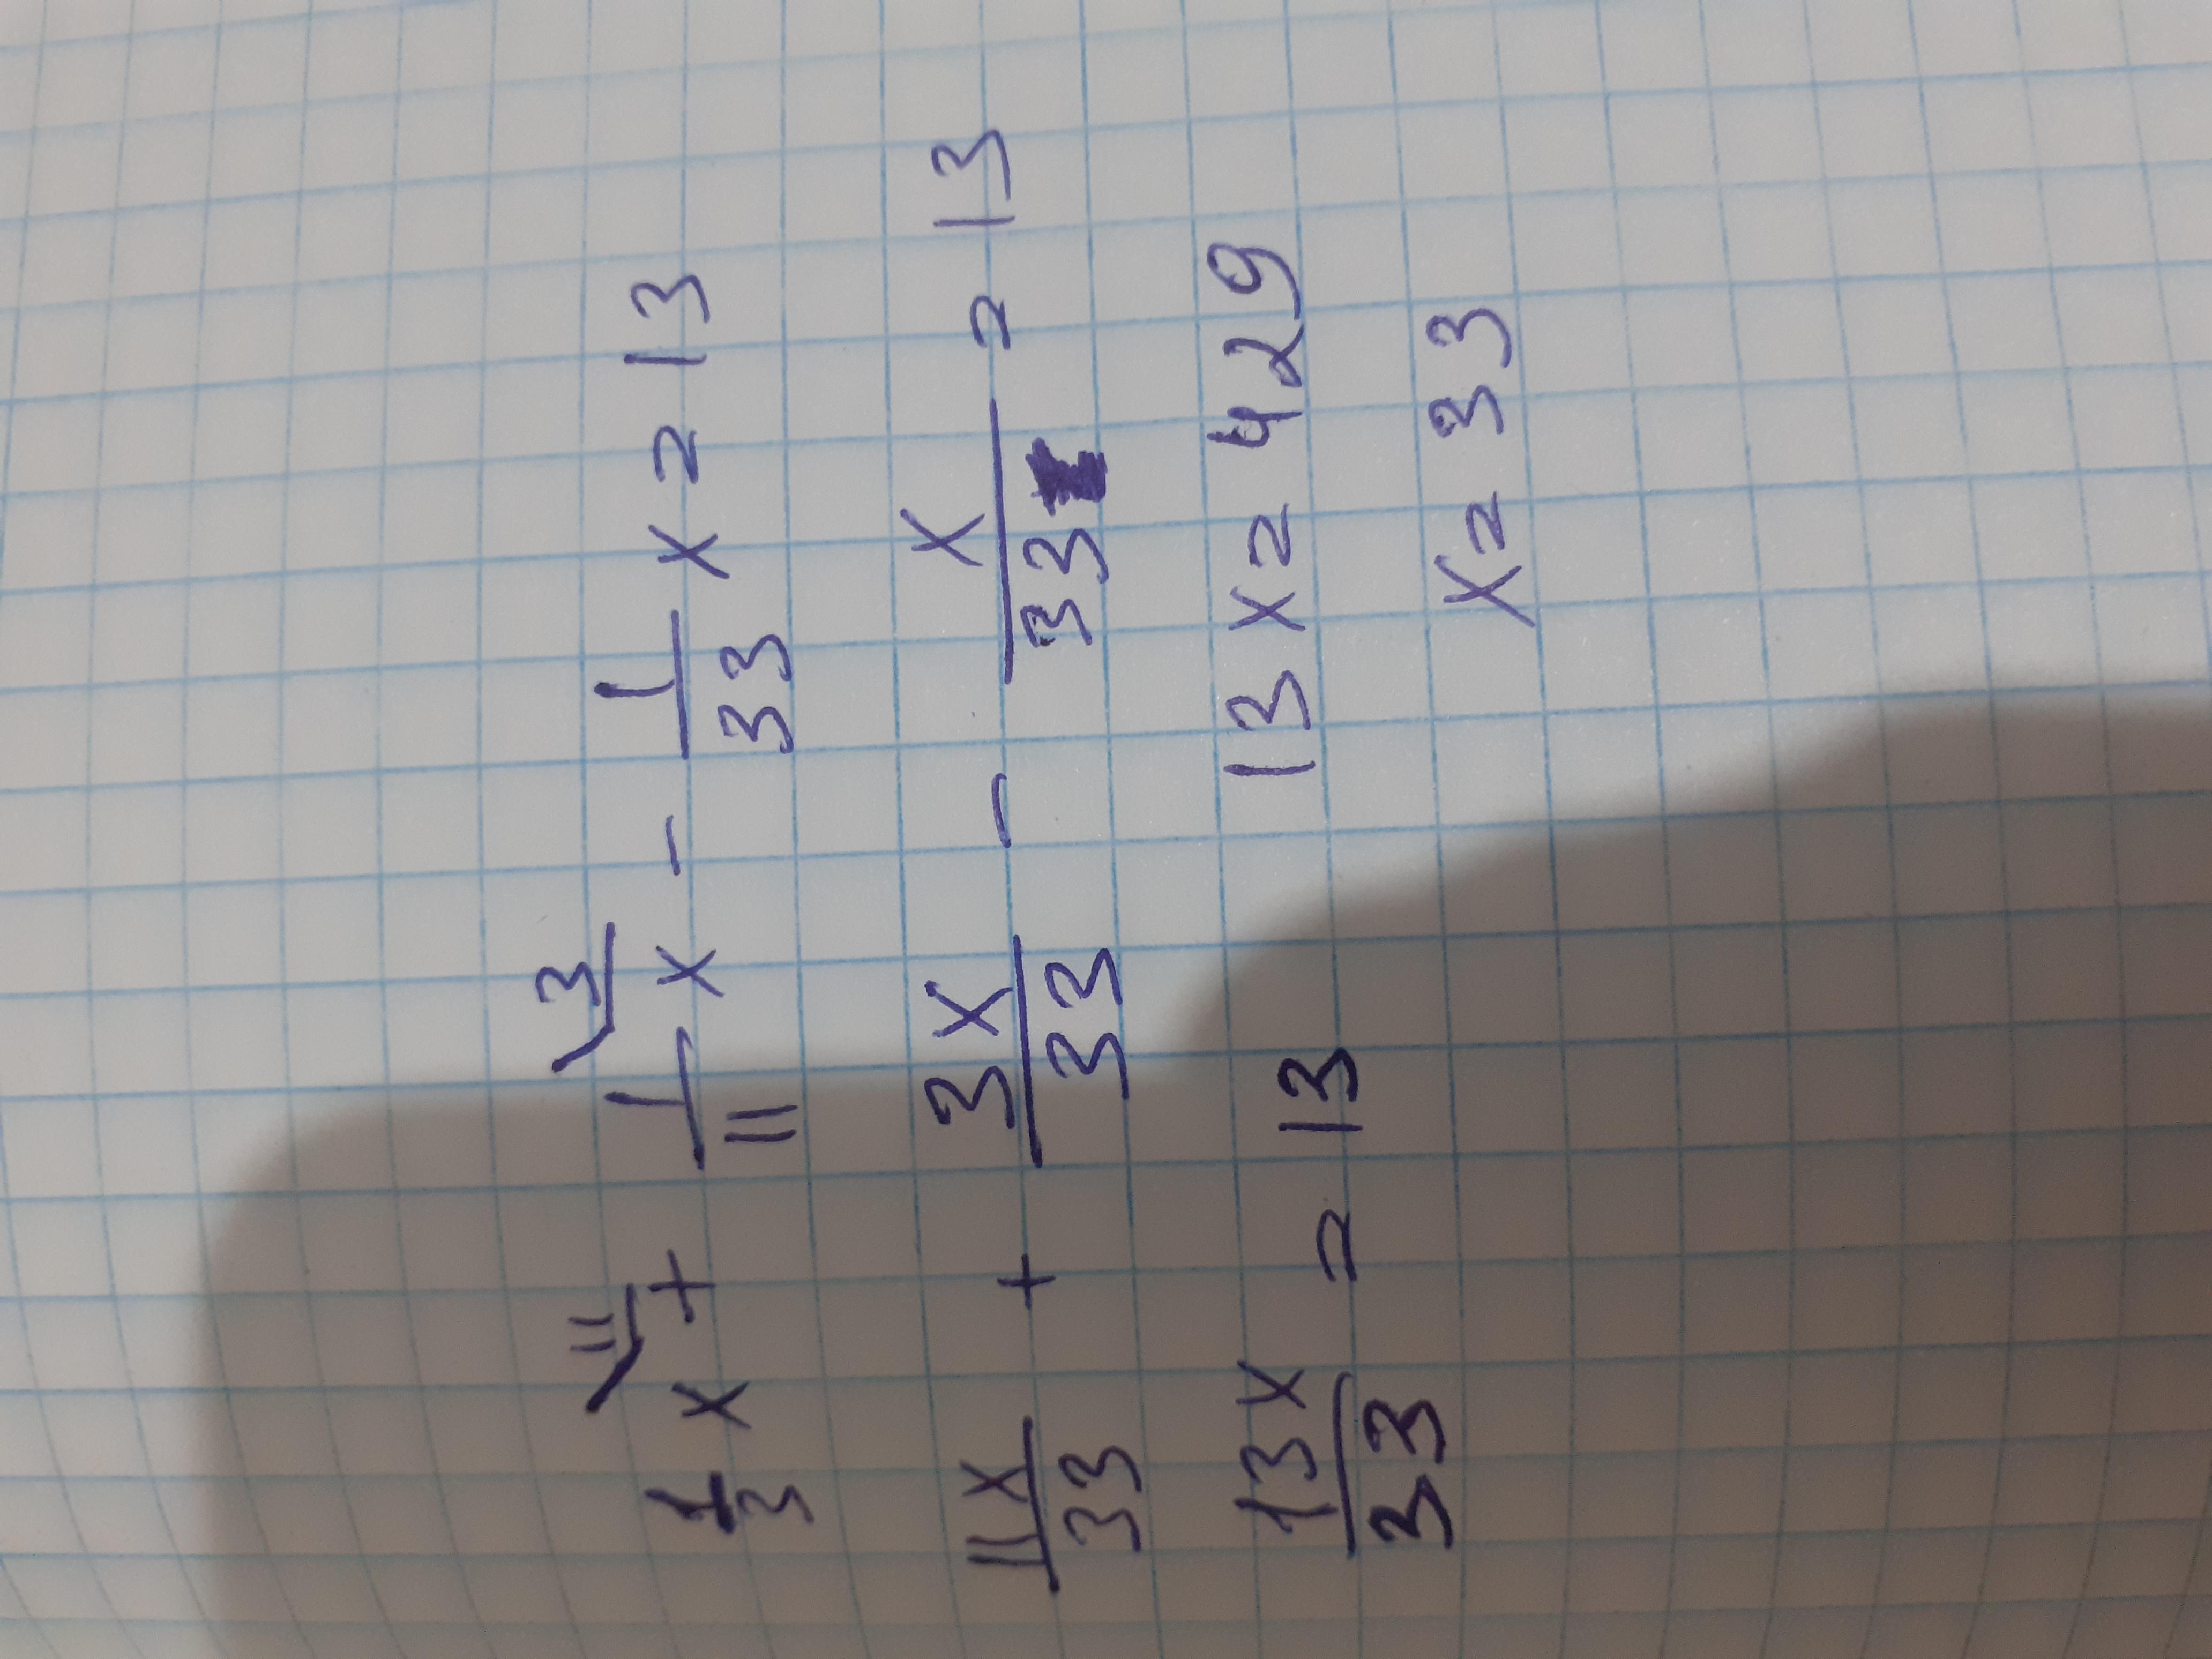 1/3 x \11 + 1/11 x \3 - 1/33 x = 13
11x/33 + 3x/33 - x/33 = 13
13x/33 = 13 13x = 429
x = 33